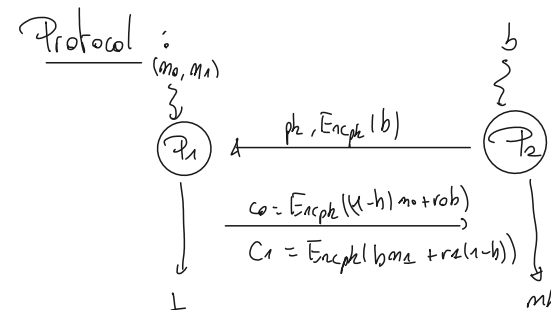 Protocol :
(m0, m1)
b
P1
pk, Encpk(b)
P2
c0 = Encpk((1-b) m0 + r0b)
C1 = Encpk(bm1 + r1(1-b))
⊥
mb